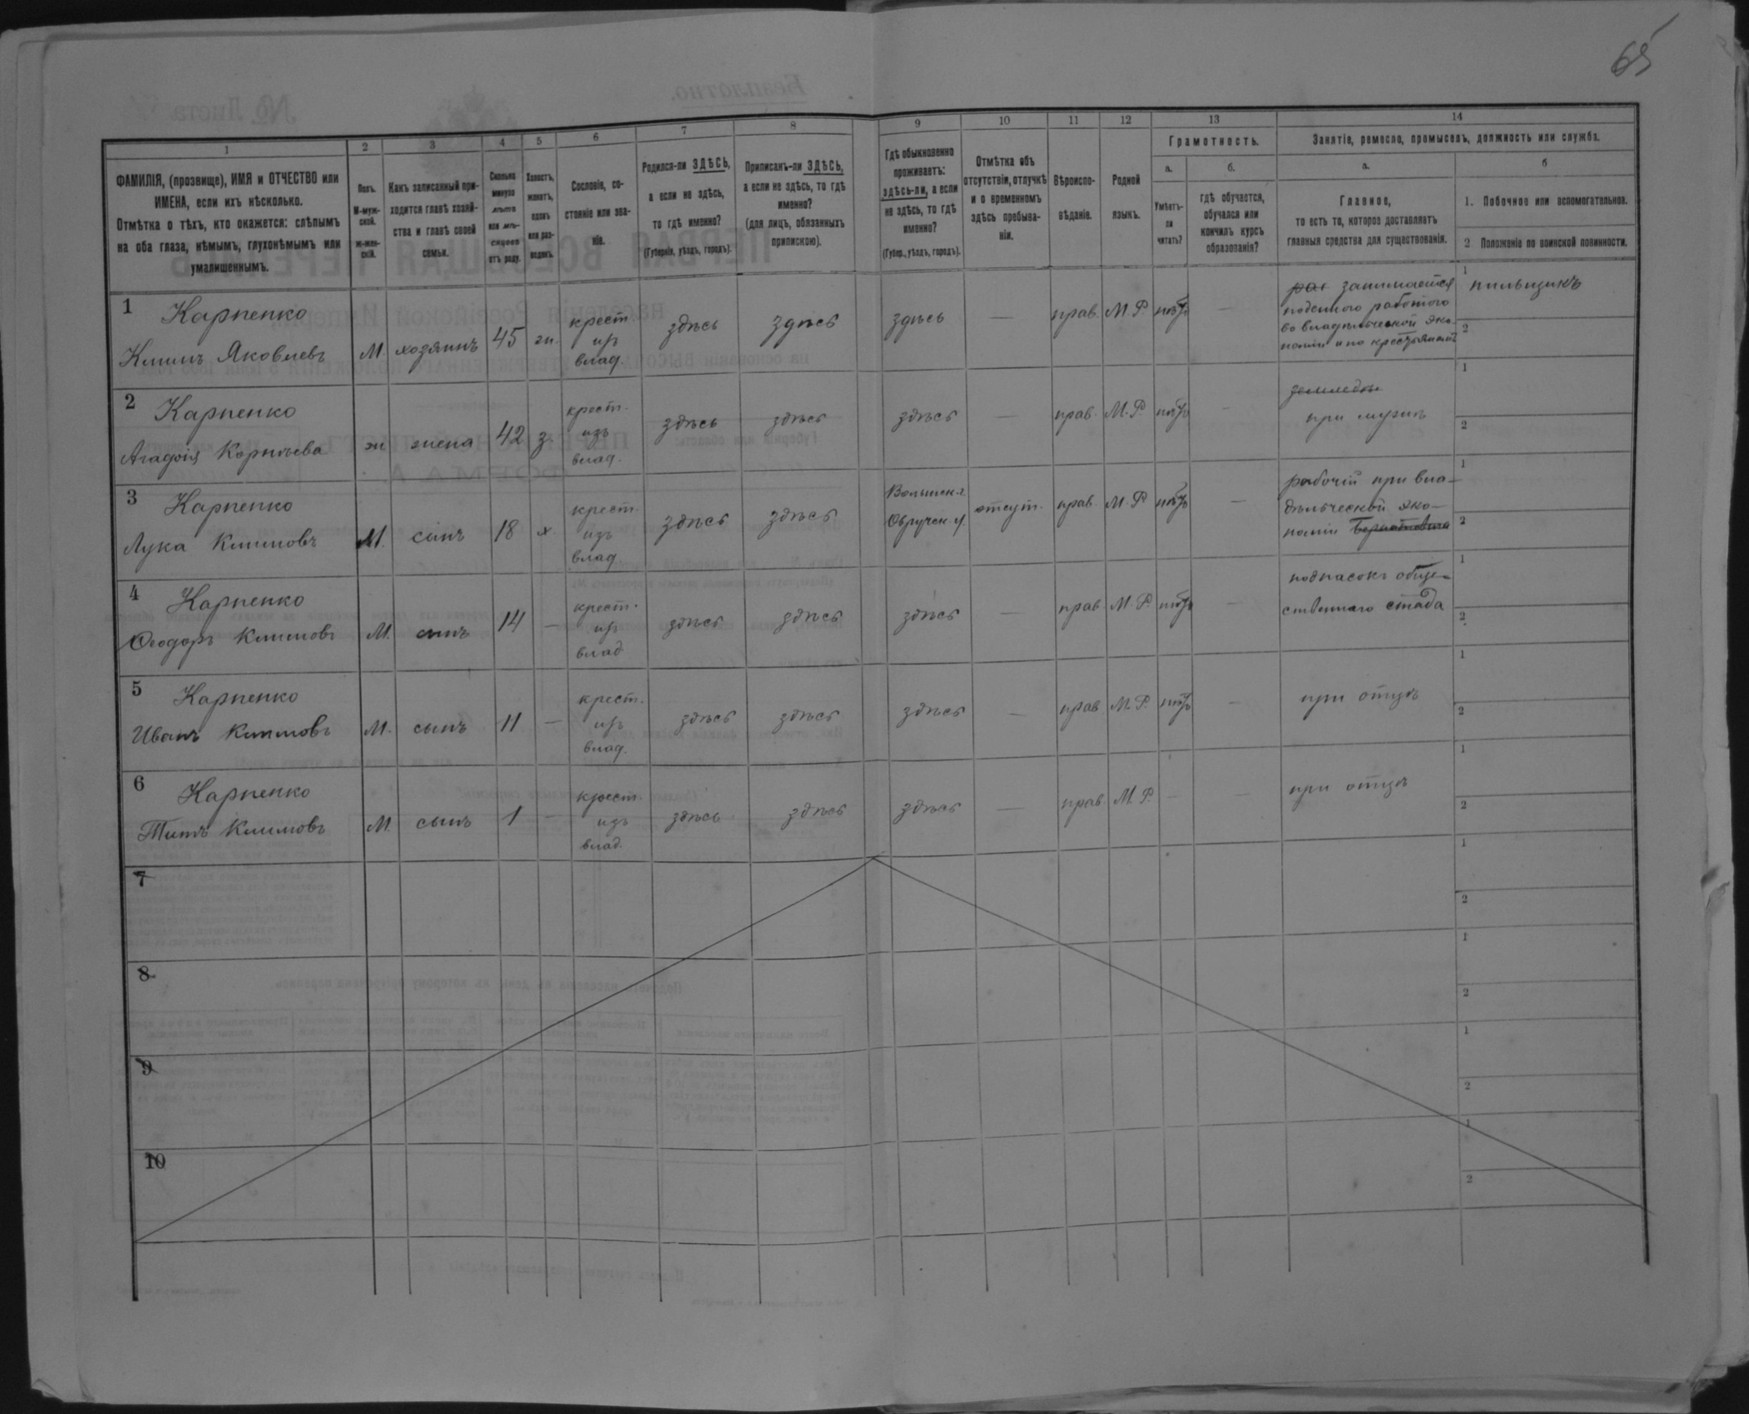 65
1
2
3
4
5
6
7
8
9
10
11
12
13
14
ФАМИЛІЯ, (прозвище), ИМЯ и ОТЧЕСТВО или
ИМЕНА, если ихъ нѣсколько.
Отмѣтка о тѣхъ, кто окажется: слѣпымъ
на оба глаза, нѣмымъ, глухонѣмымъ или
умалишеннымъ.
Полъ.
М-муж-
ской.
ж-жен-
скій.
Какъ записанный при-
ходится главѣ хозяй-
ства и главѣ своей
семьи.
Сколько
минуло
лѣтъ
или мѣ-
сяцевъ
отъ роду.
Холостъ,
женатъ,
вдовъ
или раз-
веденъ.
Сословіе, со-
стояніе или зва-
ніе.
Родился-ли ЗДѢСЬ,
а если не здѣсь,
то гдѣ именно?
(Губернія, уѣздъ, городъ).
Приписанъ-ли ЗДѢСЬ,
а если не здѣсь, то гдѣ
именно?
(для лицъ, обязанныхъ
припискою).
Гдѣ обыкновенно
проживаетъ:
здѣсь-ли, а если
не здѣсь, то гдѣ
именно?
(Губер., уѣздъ, городъ).
Отмѣтка объ
отсутствіи, отлучкѣ
и о временномъ
здѣсь пребыва-
ніи.
Вѣроиспо-
вѣданіе.
Родной
языкъ.
Грамотность.
а.
б.
Умѣетъ-
ли
читать?
гдѣ обучается,
обучался или
кончилъ курсъ
образованія?
Занятіе, ремесло, промыселъ, должность или служба.
а.
б
Главное,
то есть то, которое доставляетъ
главныя средства для существованія.
1. Побочное или вспомогательное.
2 Положеніе по воинской повинности.
1 Карпенко
Климъ Яковлевъ М. хозяинъ 45 ж. крест. изъ влад. здѣсь здѣсь здѣсь — прав. М.Р. нѣтъ —
занимается
поденною работою
во владѣльческой эко-
номіи и по крестьянамъ
1 пильщикъ
2
2 Карпенко
Агафія Корнѣева ж жена 42 з. крест. изъ влад. здѣсь здѣсь здѣсь — прав. М.Р. нѣтъ —
при мужѣ
1
2
3 Карпенко
Лука Климовъ М. сынъ 18 х крест. изъ влад. здѣсь здѣсь Волынск. г. Овручск. у. отсут. прав. М.Р. нѣтъ —
рабочій при вла-
дѣльческой эко-
номіи
1
2
4 Карпенко
Ѳеодоръ Климовъ М. сынъ 14 — крест. изъ влад здѣсь здѣсь здѣсь — прав. М.Р. нѣтъ —
подпасокъ обще-
ственнаго стада
1
2
5 Карпенко
Иванъ Климовъ М. сынъ 11 — крест. изъ влад. здѣсь здѣсь здѣсь — прав М.Р. нѣтъ — при отцѣ
1
2
6 Карпенко
Титъ Климовъ М. сынъ 1 — крест. изъ влад. здѣсь здѣсь здѣсь — прав М.Р. — — при отцѣ
1
2
7
1
2
8
1
2
9
1
2
10
1
2